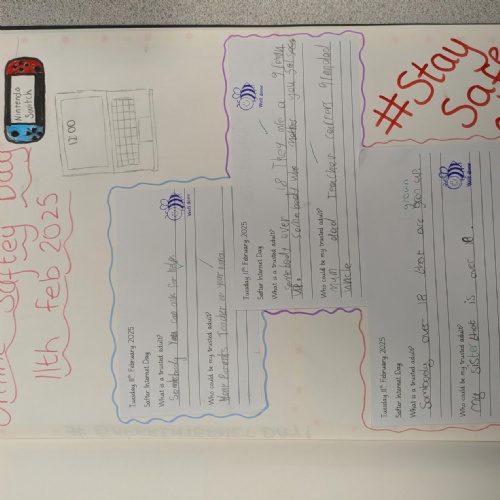 Online Saftey Day
11th Feb 2025
Nintendo
Switch
12:00
Tuesday 11th February 2025
Safter Internet Day
What is a trusted adult?
Somebody You can ask for help.
Who could be my trusted adult?
Your parents teacher or your nana
Well done
Tuesday 11th February 2025
Safter Internet Day
What is a trusted adult?
Somebody over 18 They are a grown
up. Somebody who makes you
Who could be my trusted adult?
mum dad Teacher carers grandad
uncle
Well done
#Stay
Safe
Tuesday 11th February 2025
Safter Internet Day
What is a trusted adult?
Somebody over 18 that are grown up
grown
Who could be my trusted adult?
my sister that is over 18.
Well done